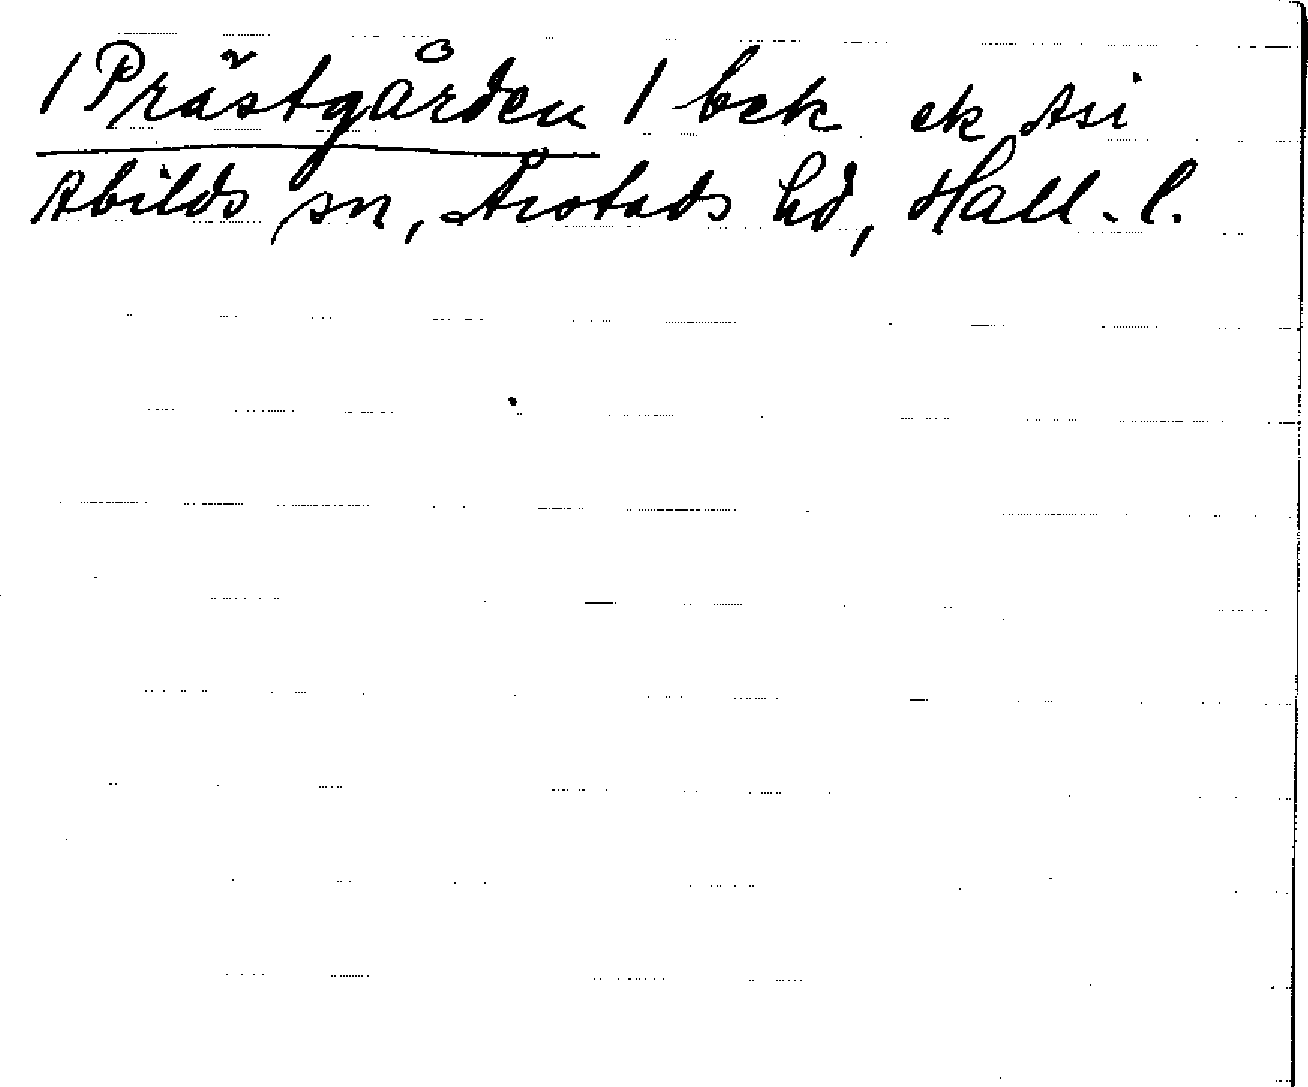 /Prästgården/ bek ek Asi
Abilds sn, Årstads hd, Hall. l.